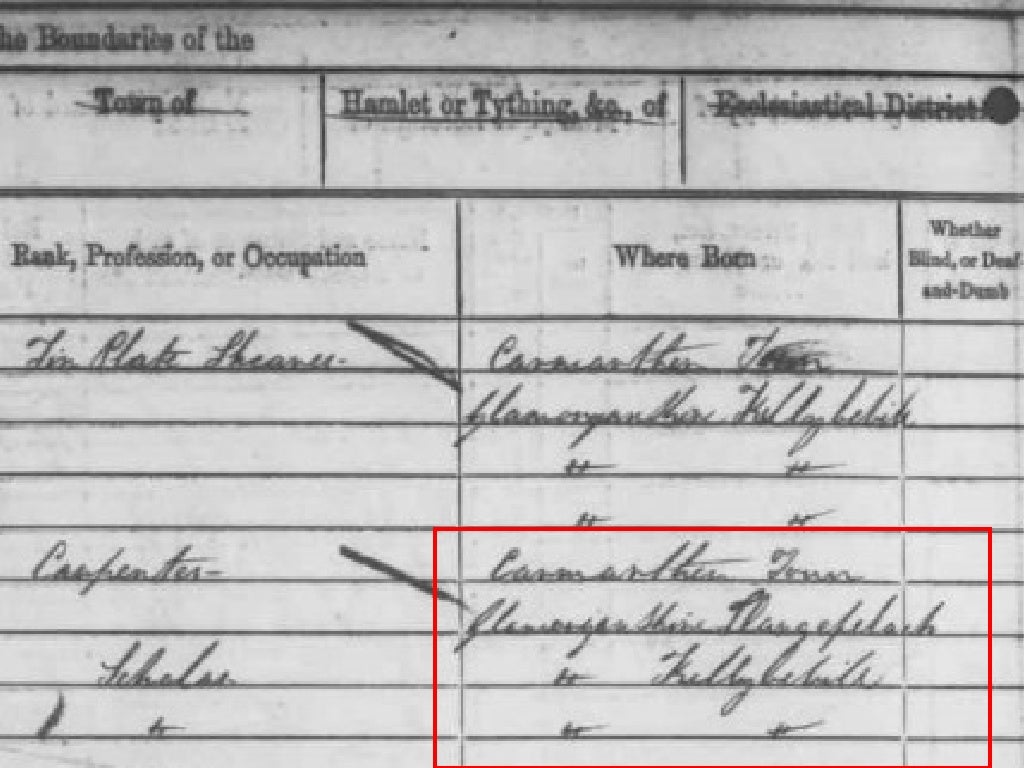 he Boundaries of the
Town of Hamlet or Tything, &c., of Ecclesiastical District
Rank, Profession, or Occupation Where Born Whether Blind, or Deaf-and-Dumb
Tin Plate Shearer Carmarthen Town
Glamorganshire Killybebill
" "
" "
Carpenter Carmarthen Town
Glamorganshire Llangefelach
Scholar " Killybebill
" " "